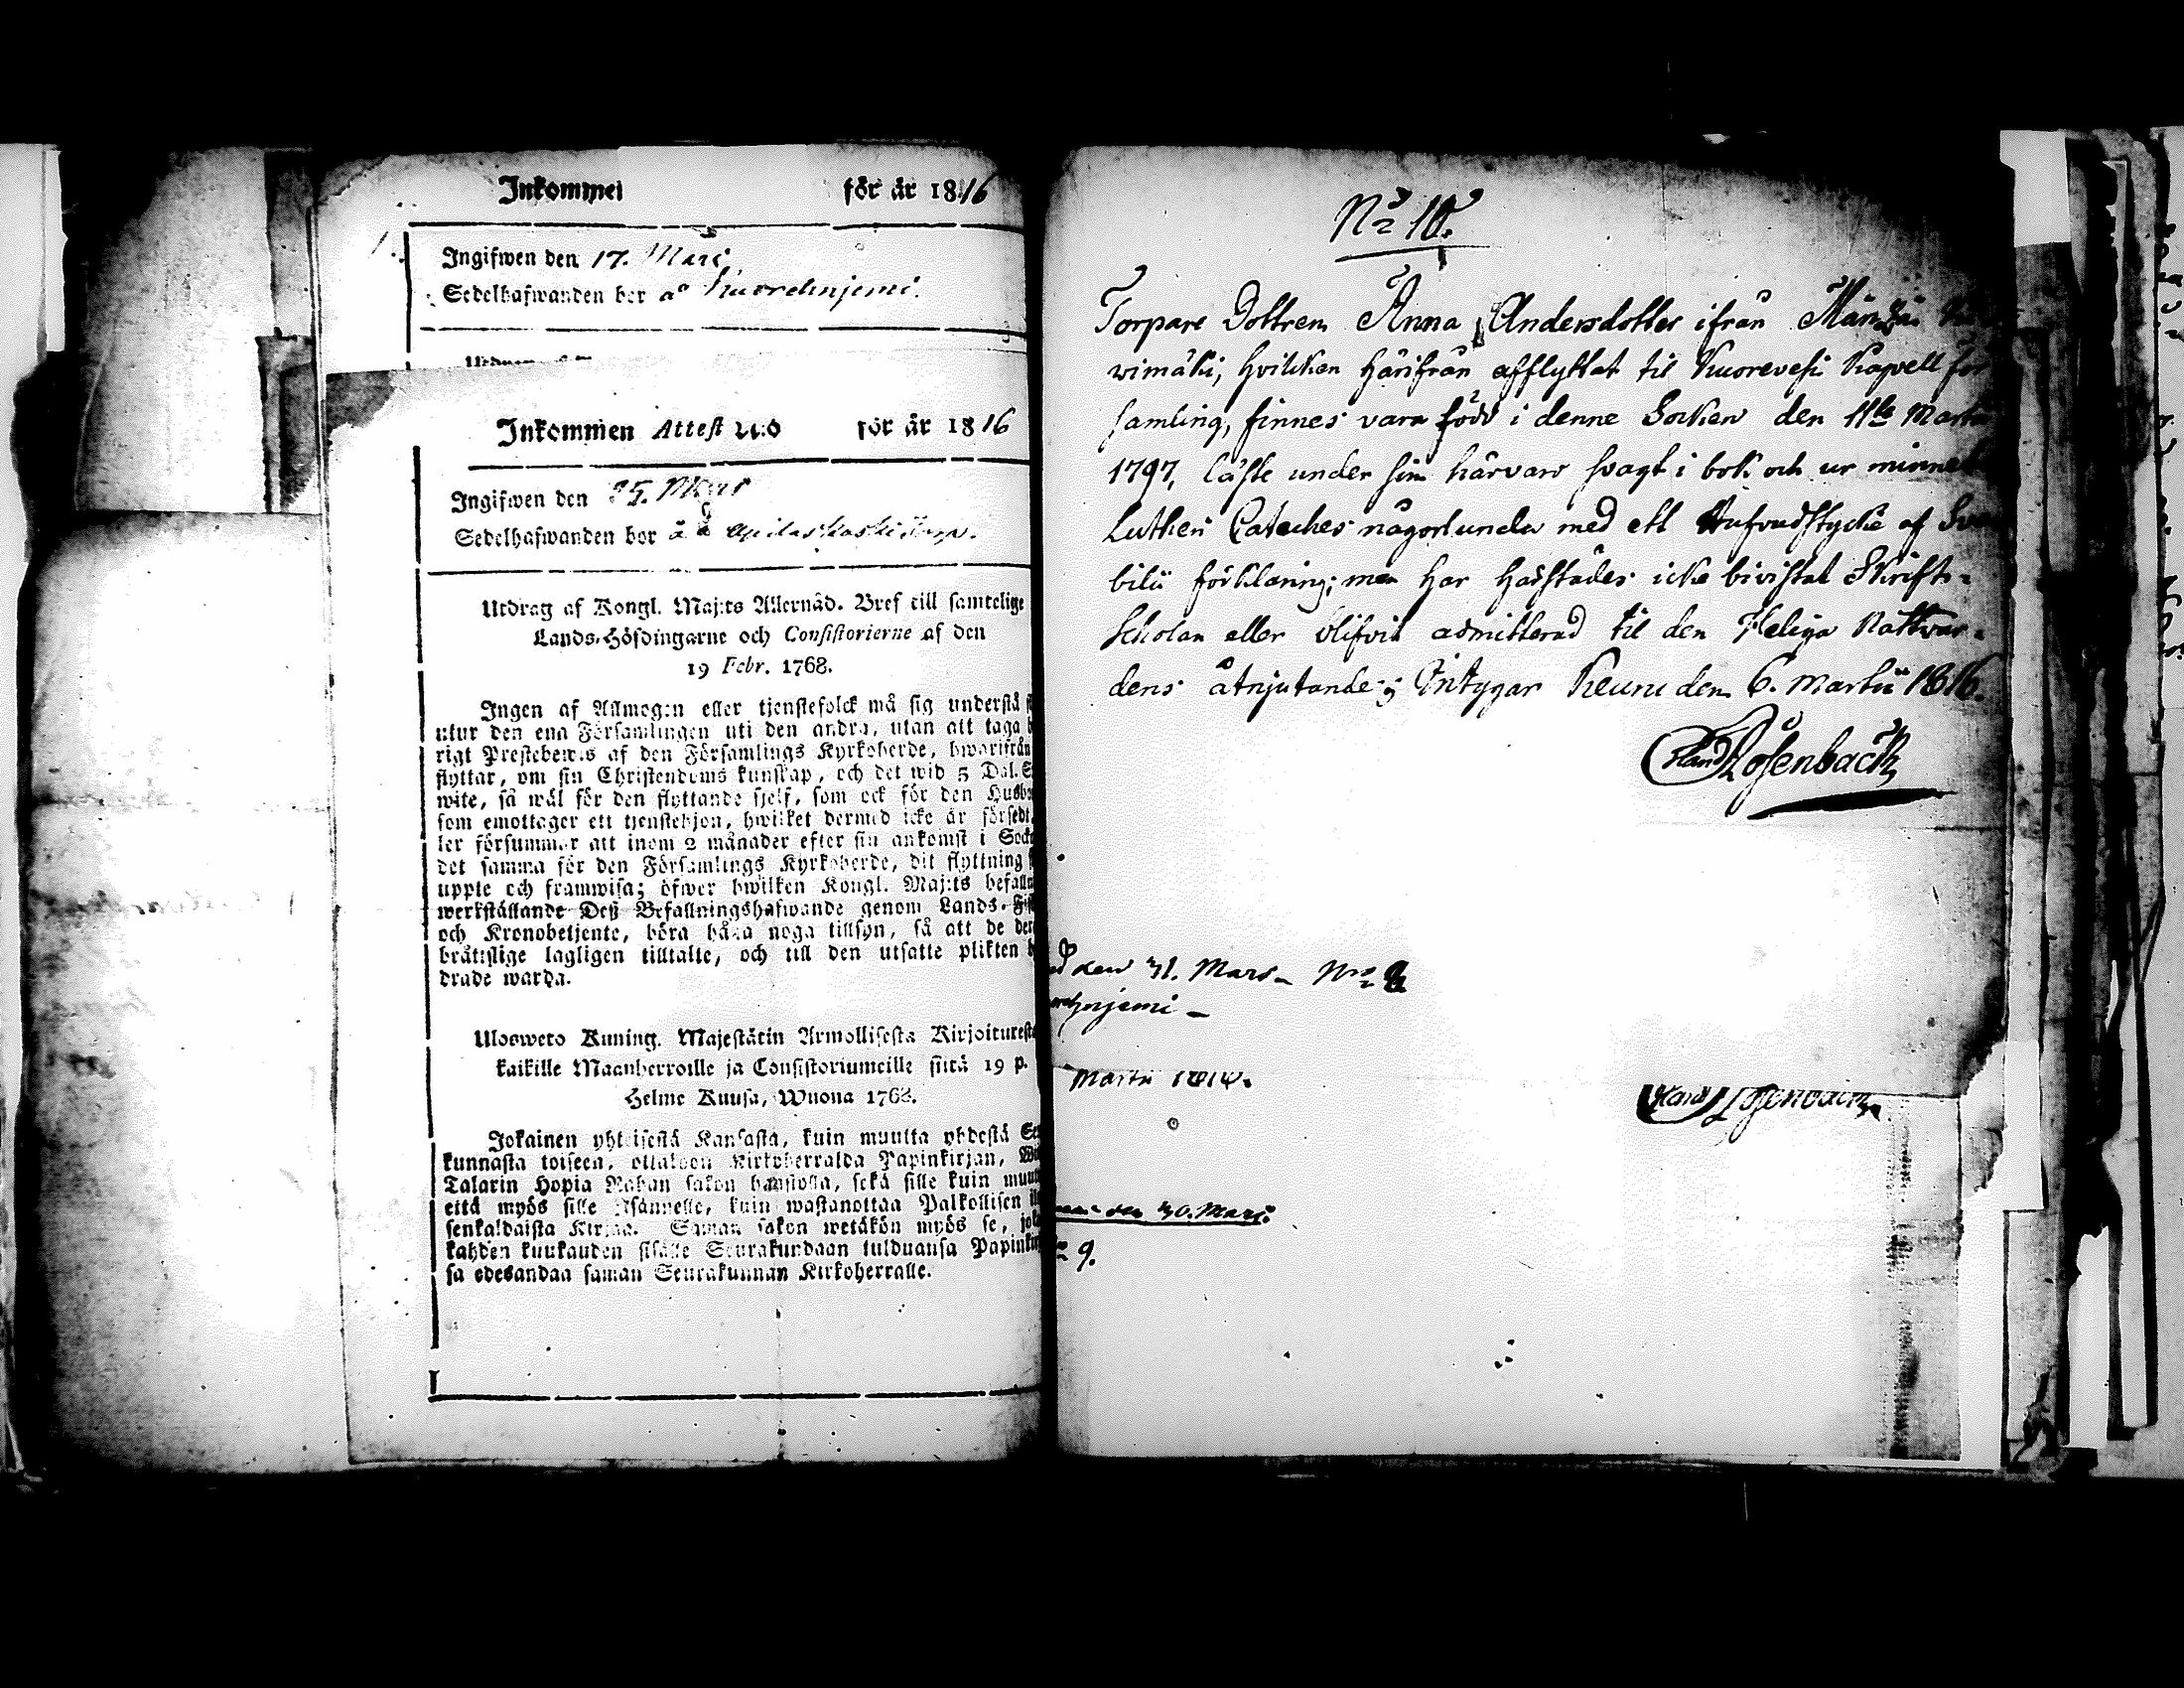 Inkommen för år 1816
Ingifwen den 17. Mars
Sedelhafwanden bor å Kuorehnjemi.
Inkommen Attest N:o för år 1816
Ingifwen den 25. Mars
Sedelhafwanden bor å
Utdrag af Kongl. Maj:ts Allernåd. Bref till samtelige
Lands-Höfdingarne och Consistorierne af den
19 Febr. 1768.
Ingen af Allmogen eller tjenstefolck må sig understå
utur den ena Församlingen uti den andra, utan att taga
rigt Prestebewis af den Församlings Kyrkoherde, hwarifrån
flyttar, om sin Christendoms kunskap, och det wid 5 Dal. S
wite, så wäl för den flyttande sjelf, som ock för den Husb
som emottager ett tjenstehjon, hwilket dermed icke är försedt,
ler försummar att inom 2 månader efter sin ankomst i Sock
det samma för den Församlings Kyrkoherde, dit flyttning
uppte och framwisa; öfwer hwilken Kongl. Maj:ts befalln
werkställande Deß Befallningshafwande genom Lands-Fis
och Kronobetjente, böra hålla noga tillsyn, så att de der
bråtslige lagligen tilltalte, och till den utsatte plikten
drade warda.
Ulosweto Kuning. Majestätin Armollisesta Kirjoituresta
kaikille Maanherroille ja Consistoriumeille siitä 19 p.
Helme Kuusa, Wuona 1768.
Jokainen yhteisestä Kansasta, kuin muutta yhdestä Se
kunnasta toiseen, ottakoon Kirkoherralda Papinkirjan, Wi
Talarin Hopia Rahan sakon haastolla, sekä sille kuin muu
että myös sille Isännelle, kuin wastanottaa Palkollisen il
senkaldaista Kirjaa. Saman sakon wetäkön myös se, jok
kahden kuukauden sisälle Seurakundaan tulduansa Papinkir
sa edesandaa saman Seurakunnan Kirkoherralle.
No 10.
Torpare Dottren Anna Andersdotter ifrån
wimäki, hvilken härifrån afflyttat til Kuorevesi Kapell för
samling, finnes vara född i denne Socken den 11te Martii
1797, läste under sin härvaro svagt i bok och ur minnet
Lutheri Cateches någorlunda med ett Hufvudstycke af Sve
bilii förklaring; men har härstädes icke bivistat Skrifte-
Scholan eller blifvit admitterad til den Heliga Nattvar-
dens åtnjutande; Intygar Keuru den 6. Martii 1816.
Rosenback
den 31. Mars. No
hnjemi
Martii 1816.
Rosenback
den 30. Mars.
9.